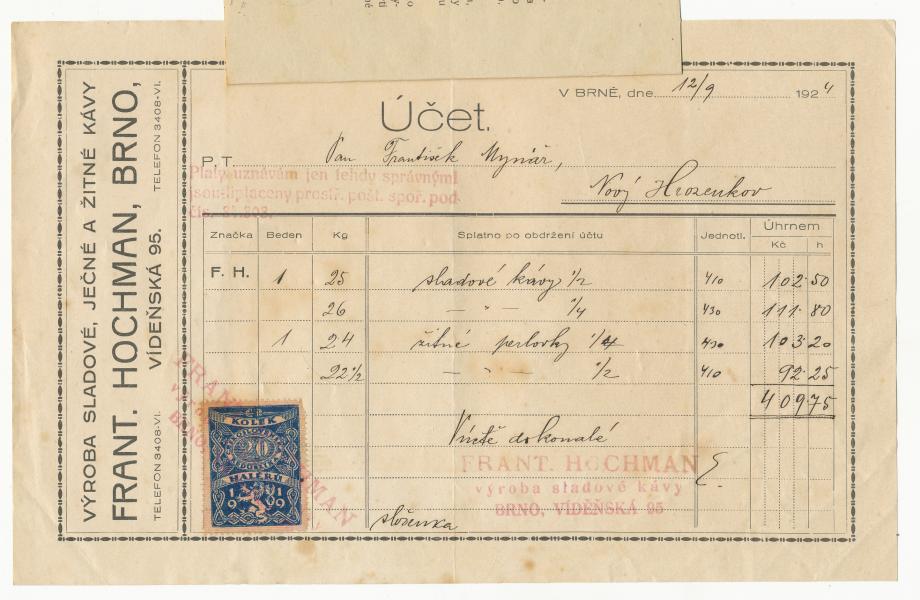 VÝROBA SLADOVÉ, JEČNÉ A ŽITNÉ KÁVY
FRANT. HOCHMAN, BRNO,
VÍDEŇSKÁ 95.
TELEFON 3408-VI.
TELEFON 3408-VI.
V BRNĚ, dne 12/9 1924
Účet.
P. T. Pan František Mynář,
Nový Hrozenkov
Platy uznávám jen tehdy správnými
jsou-li placeny prostř. pošt. spoř. pod
čís.
Značka Beden Kg Splatno po obdržení účtu Jednotl. Úhrnem
Kč h
F. H. 1 25 sladové kávy 1/2 410 102·50
26 — " — 1/4 430 111·80
1 24 žitné perlovky 1/4 430 103·20
22 1/2 — " — 1/2 410 92·25
409 75
V úctě dokonalé
FRANT. HOCHMAN
výroba sladové kávy
BRNO, VÍDEŇSKÁ 95
složenka
KOLEK
20
HALÉŘŮ
1919